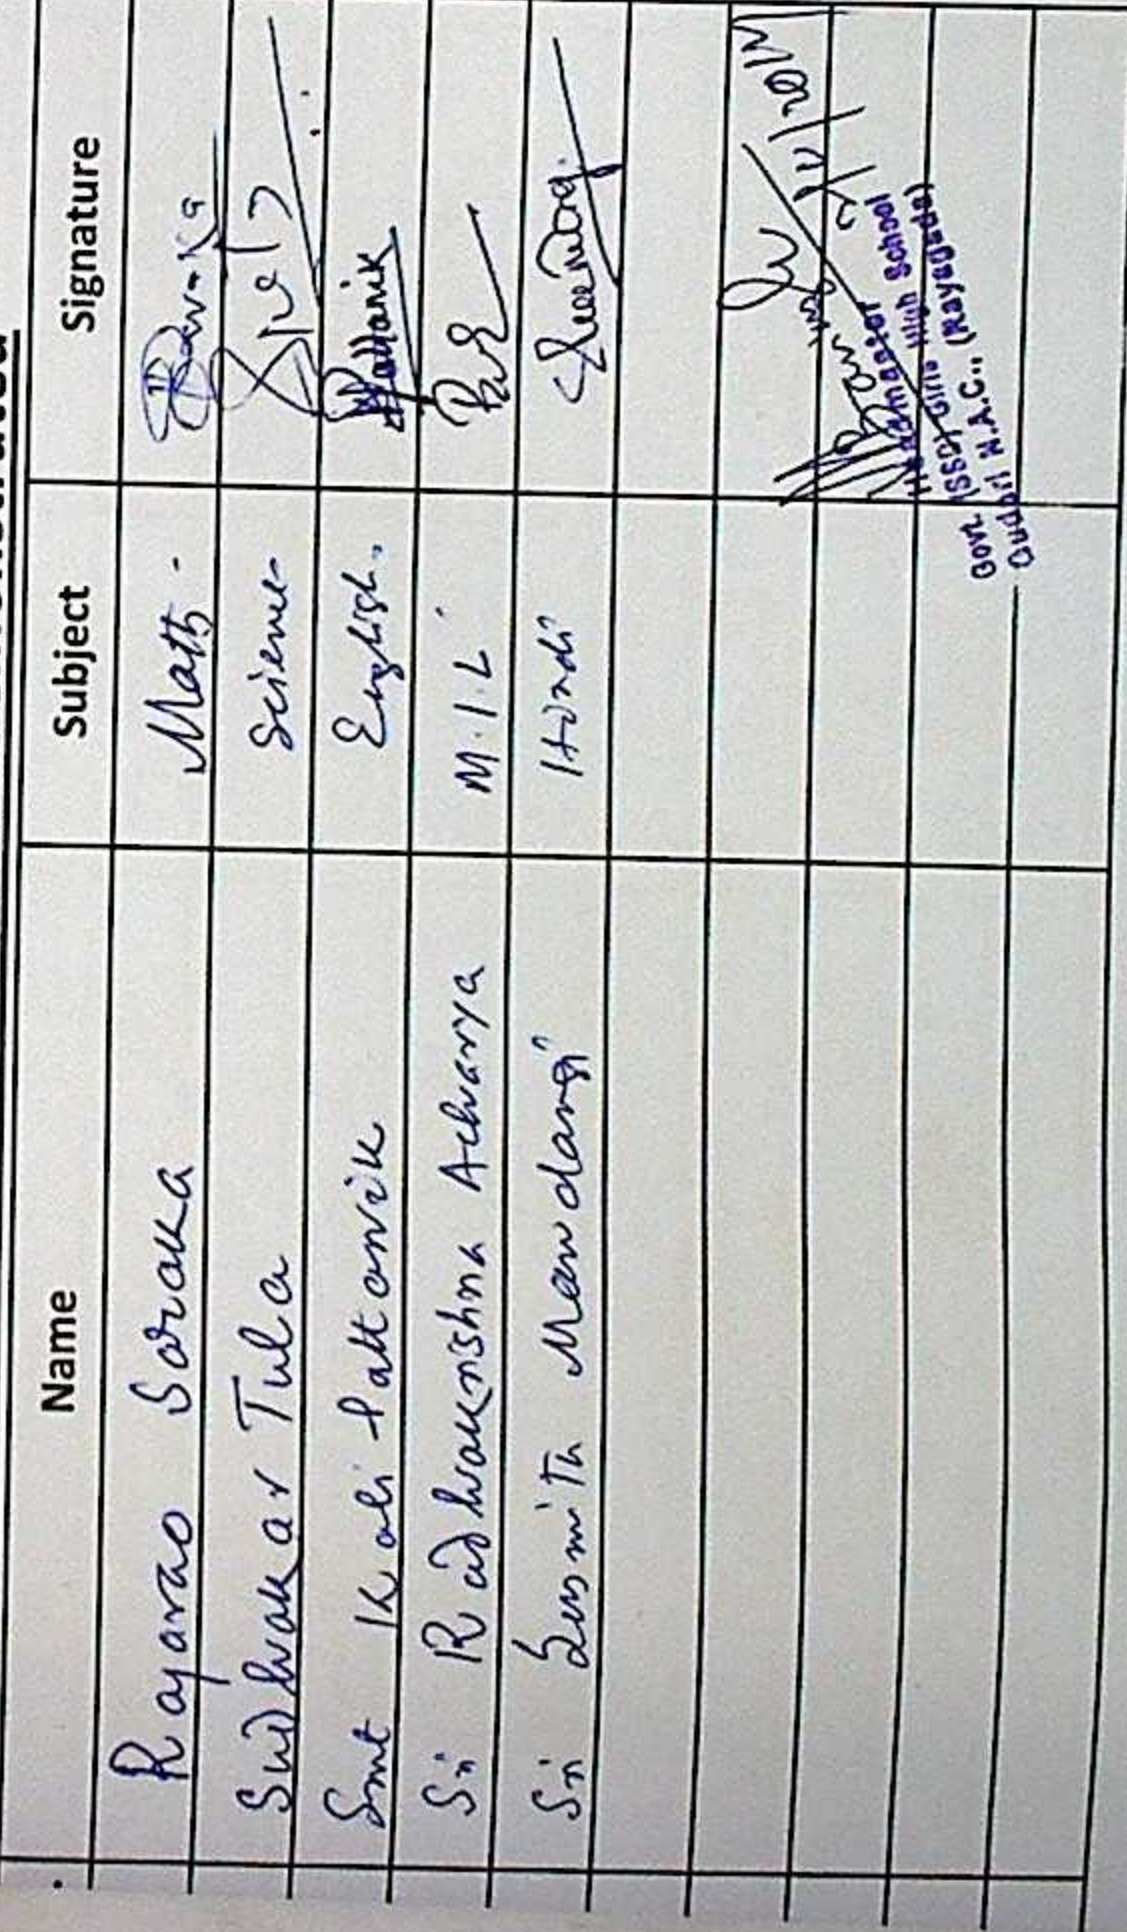 Name Subject Signature
Rayarao Soraka Math.
Sudhakar Tula Science
Smt Kali Pattanik English. Pattanik
Sri Radhakrishna Acharya M.I.L
Sri Susmith Mandangi Hindi
Headmaster
Govt. (SSD) Girls High School
Gudari N.A.C., (Rayagada)